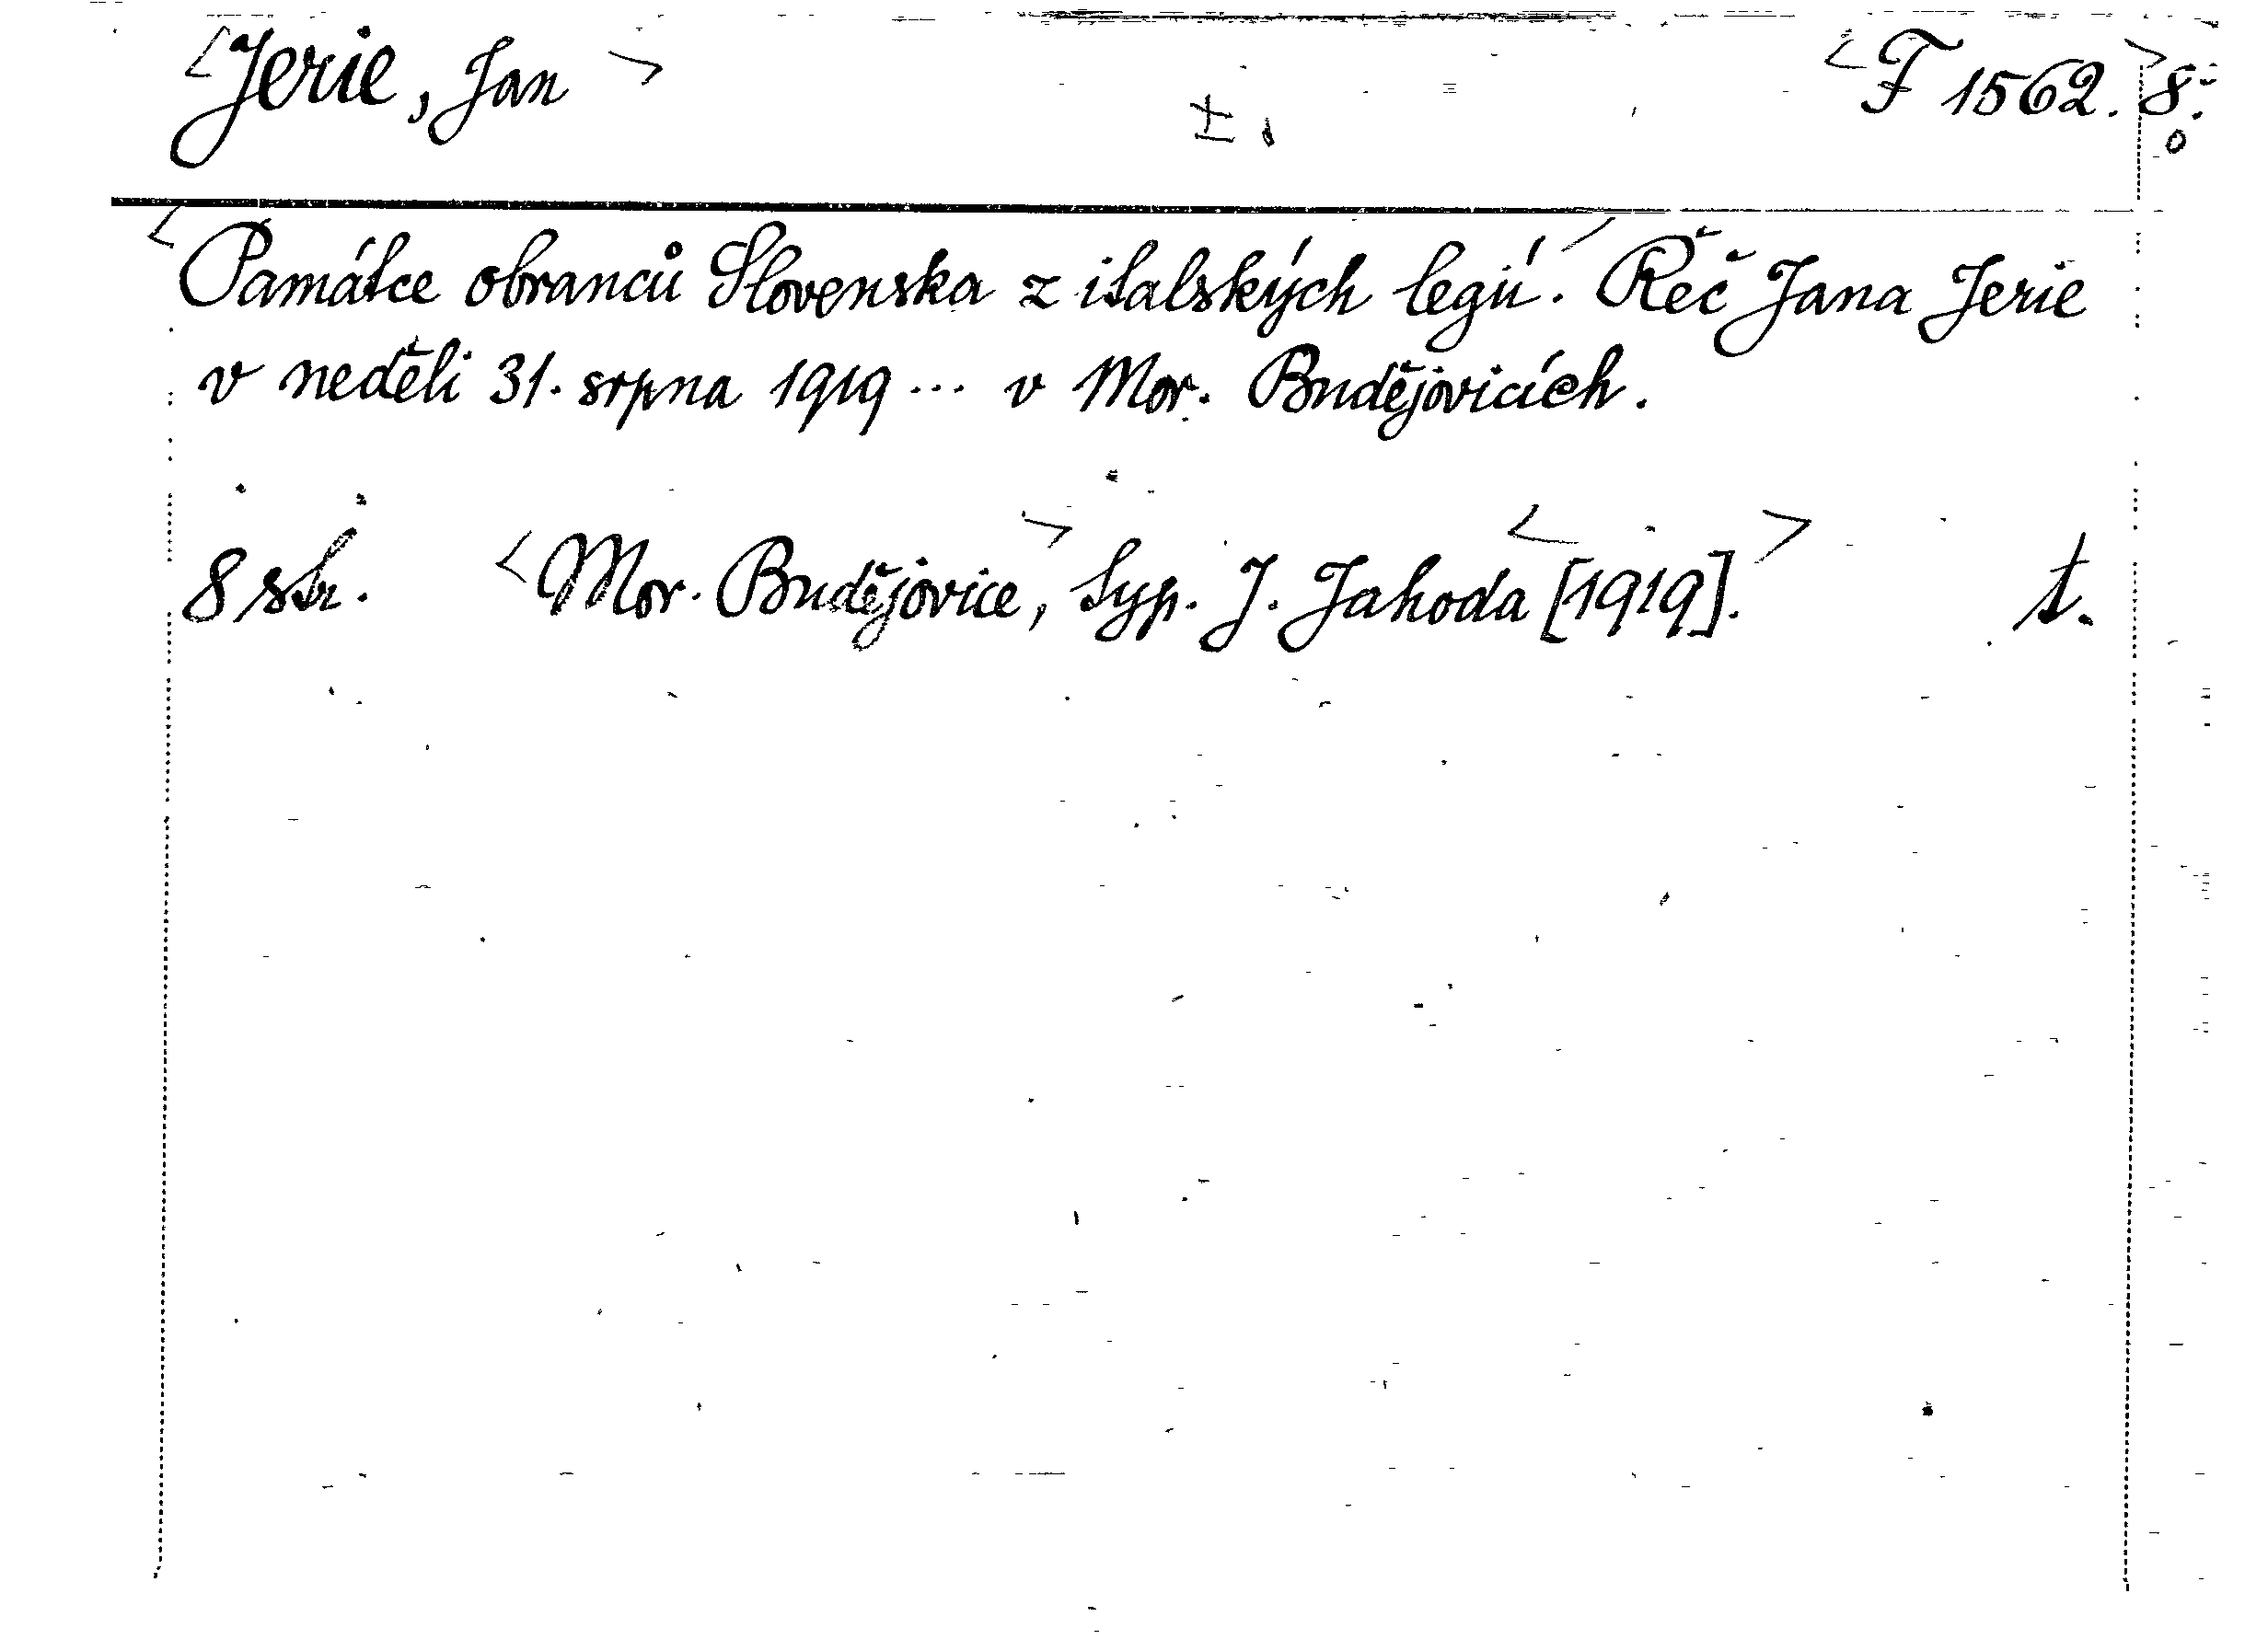 <Jerie, Jan> ±. <F 1562.> 8:o
<Památce obranců Slovenska z italských legií.> Řeč Jana Jerie
v neděli 31. srpna 1919 ... v Mor. Budějovicích.
8 str. <Mor. Budějovice,> typ. J. Jahoda <[1919].> t.